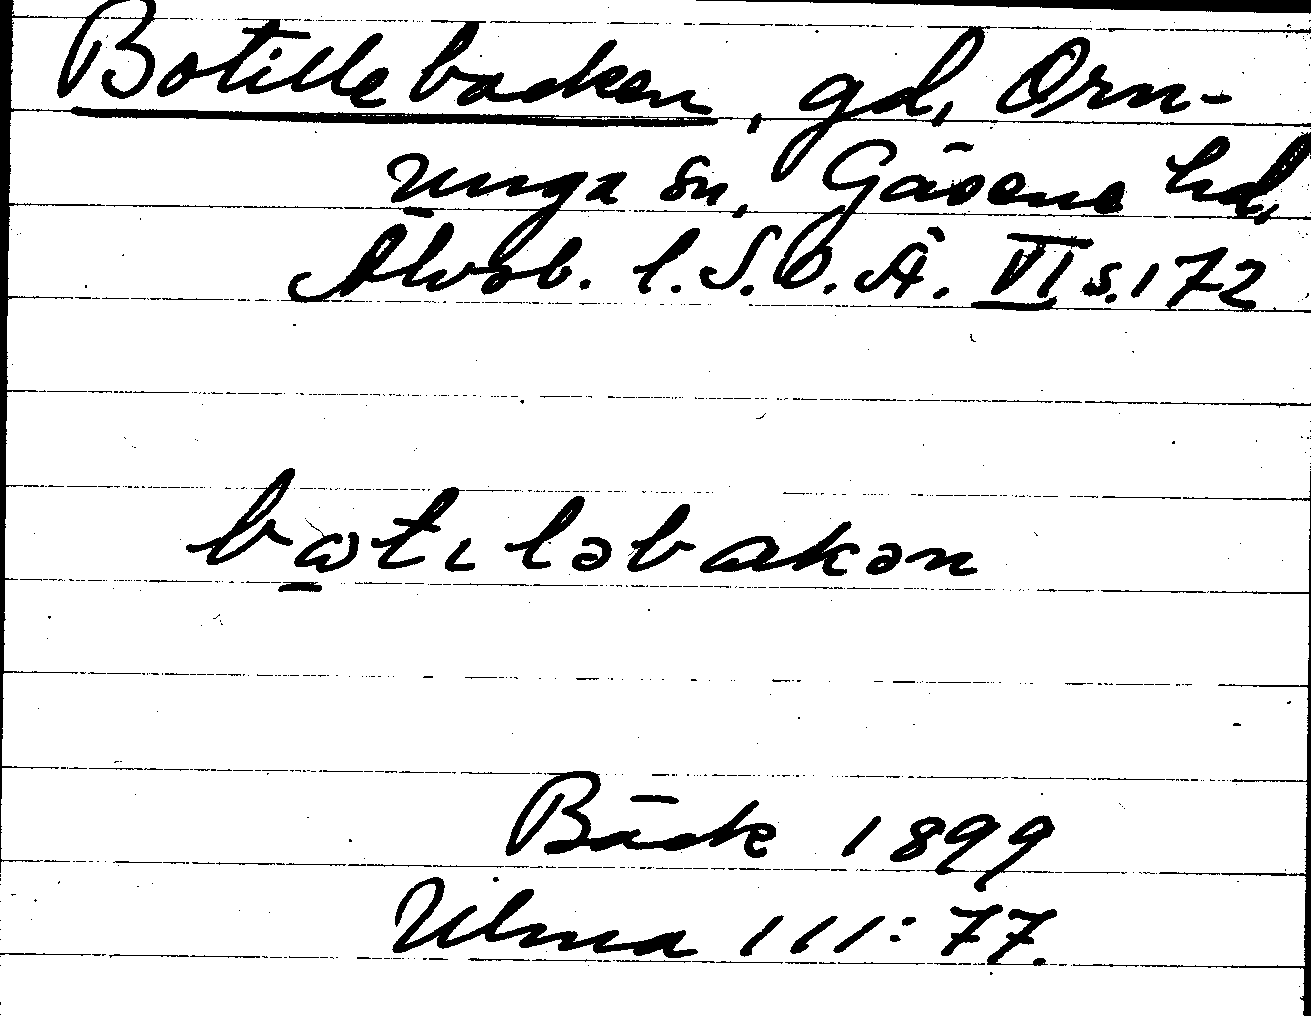 Botillebacken, gd, Orn-
unga sn, Gäsene hd,
Älvsb. l. S.O.Ä. VI s. 172
bωtιləbakən
Bäck 1899
Ulma 111:77.